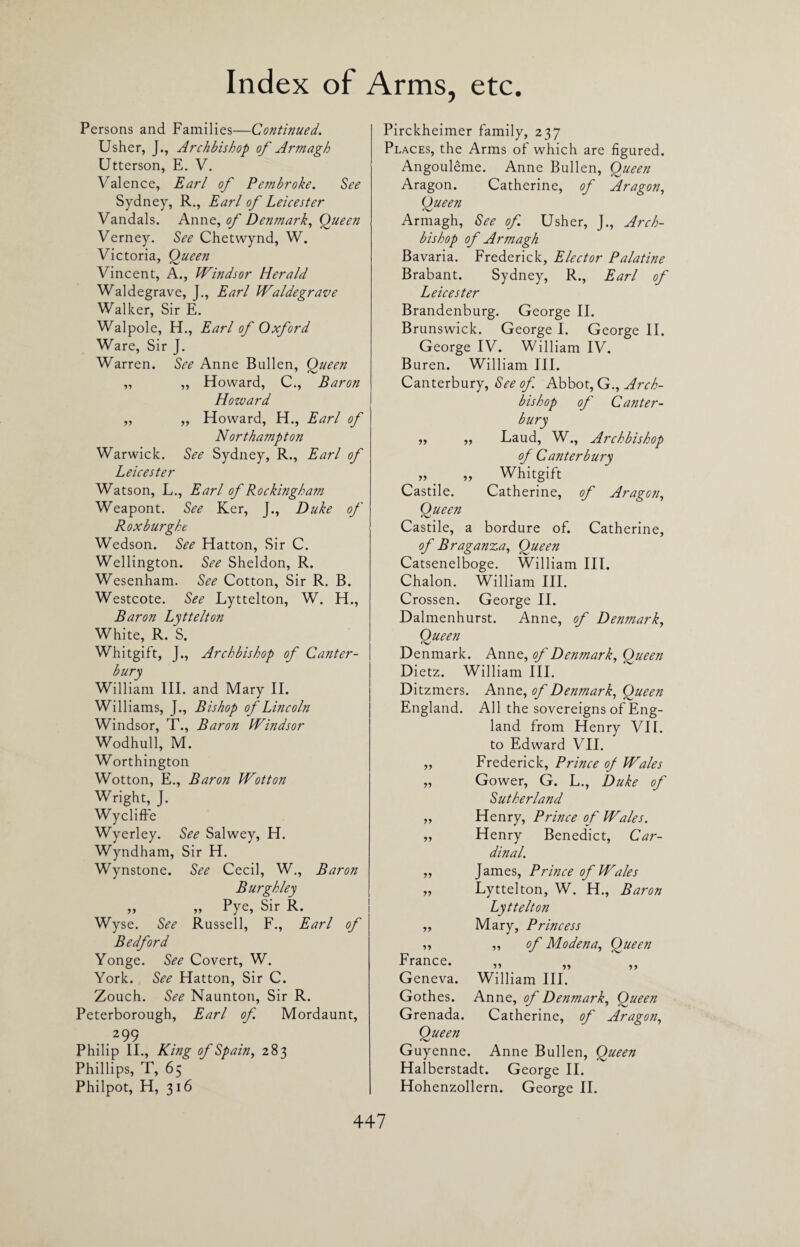 Index of Arms, etc.
Persons and Families—Continued.
Usher, J., Archbishop of Armagh
Utterson, E. V.
Valence, Earl of Pembroke. See
Sydney, R., Earl of Leicester
Vandals. Anne, of Denmark, Queen
Verney. See Chetwynd, W.
Victoria, Queen
Vincent, A., Windsor Herald
Waldegrave, J., Earl Waldegrave
Walker, Sir E.
Walpole, H., Earl of Oxford
Ware, Sir J.
Warren. See Anne Bullen, Queen
„ „ Howard, C., Baron
Howard
„ „ Howard, H., Earl of
Northampton
Warwick. See Sydney, R., Earl of
Leicester
Watson, L., Earl of Rockingham
Weapont. See Ker, J., Duke of
Roxburghe
Wedson. See Hatton, Sir C.
Wellington. See Sheldon, R.
Wesenham. See Cotton, Sir R. B.
Westcote. See Lyttelton, W. H.,
Baron Lyttelton
White, R. S.
Whitgift, J., Archbishop of Canter-
bury
William III. and Mary II.
Williams, J., Bishop of Lincoln
Windsor, T., Baron Windsor
Wodhull, M.
Worthington
Wotton, E., Baron Wotton
Wright, J.
Wycliffe
Wyerley. See Salwey, H.
Wyndham, Sir H.
Wynstone. See Cecil, W., Baron
Burghley
„ „ Pye, Sir R.
Wyse. See Russell, F., Earl of
Bedford
Yonge. See Covert, W.
York. See Hatton, Sir C.
Zouch. See Naunton, Sir R.
Peterborough, Earl of. Mordaunt,
299
Philip II., King of Spain, 283
Phillips, T, 65
Philpot, H, 316
Pirckheimer family, 237
Places, the Arms of which are figured.
Angoulême. Anne Bullen, Queen
Aragon. Catherine, of Aragon,
Queen
Armagh, See of. Usher, J., Arch-
bishop of Armagh
Bavaria. Frederick, Elector Palatine
Brabant. Sydney, R., Earl of
Leicester
Brandenburg. George II.
Brunswick. George I. George II.
George IV. William IV.
Buren. William III.
Canterbury, See of. Abbot, G., Arch-
bishop of Canter-
bury
„ „ Laud, W., Archbishop
of Canterbury
„ „ Whitgift
Castile. Catherine, of Aragon,
Queen
Castile, a bordure of. Catherine,
of Braganza, Queen
Catsenelboge. William III.
Chalon. William III.
Crossen. George II.
Dalmenhurst. Anne, of Denmark,
Queen
Denmark. Anne, of Denmark, Queen
Dietz. William III.
Ditzmers. Anne, of Denmark, Queen
England. All the sovereigns of Eng-
land from Henry VII.
to Edward VII.
„ Frederick, Prince of Wales
„ Gower, G. L., Duke of
Sutherland
„ Henry, Prince of Wales.
„ Henry Benedict, Car-
dinal.
„ James, Prince of Wales
„ Lyttelton, W. H., Baron
Lyttelton
„ Mary, Princess
„ „ of Modena, Queen
France. „ „ „
Geneva. William III.
Gothes. Anne, of Denmark, Queen
Grenada. Catherine, of Aragon,
Queen
Guyenne. Anne Bullen, Queen
Halberstadt. George II.
Hohenzollern. George II.
447